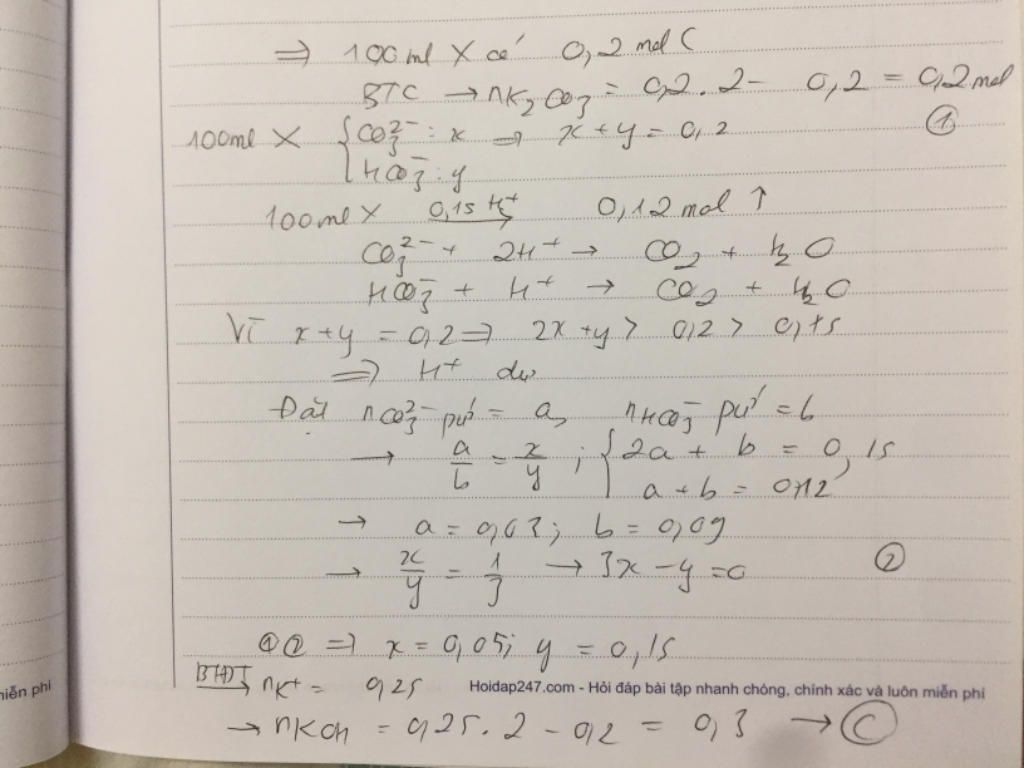 ⇒ 100ml X có 0,2 mol C
BTC → nK₂CO₃ = 0,2.2 - 0,2 = 0,2 mol
100ml X { CO₃²⁻ : x ⇒ x + y = 0,2 ①
HCO₃⁻ : y
100ml X 0,15 H⁺ → 0,12 mol ↑
CO₃²⁻ + 2H⁺ → CO₂ + H₂O
HCO₃⁻ + H⁺ → CO₂ + H₂O
Vì x + y = 0,2 ⇒ 2x + y > 0,2 > 0,15
⇒ H⁺ dư
Đặt nCO₃²⁻ pư = a, nHCO₃⁻ pư = b
→ a/b = x/y ; { 2a + b = 0,15
a + b = 0,12
→ a = 0,03; b = 0,09
→ x/y = 1/3 → 3x - y = 0 ②
①② ⇒ x = 0,05; y = 0,15
BTĐT → nK⁺ = 0,25
Hoidap247.com - Hỏi đáp bài tập nhanh chóng, chính xác và luôn miễn phí
→ nKOH = 0,25.2 - 0,2 = 0,3 → Ⓒ
miễn phí